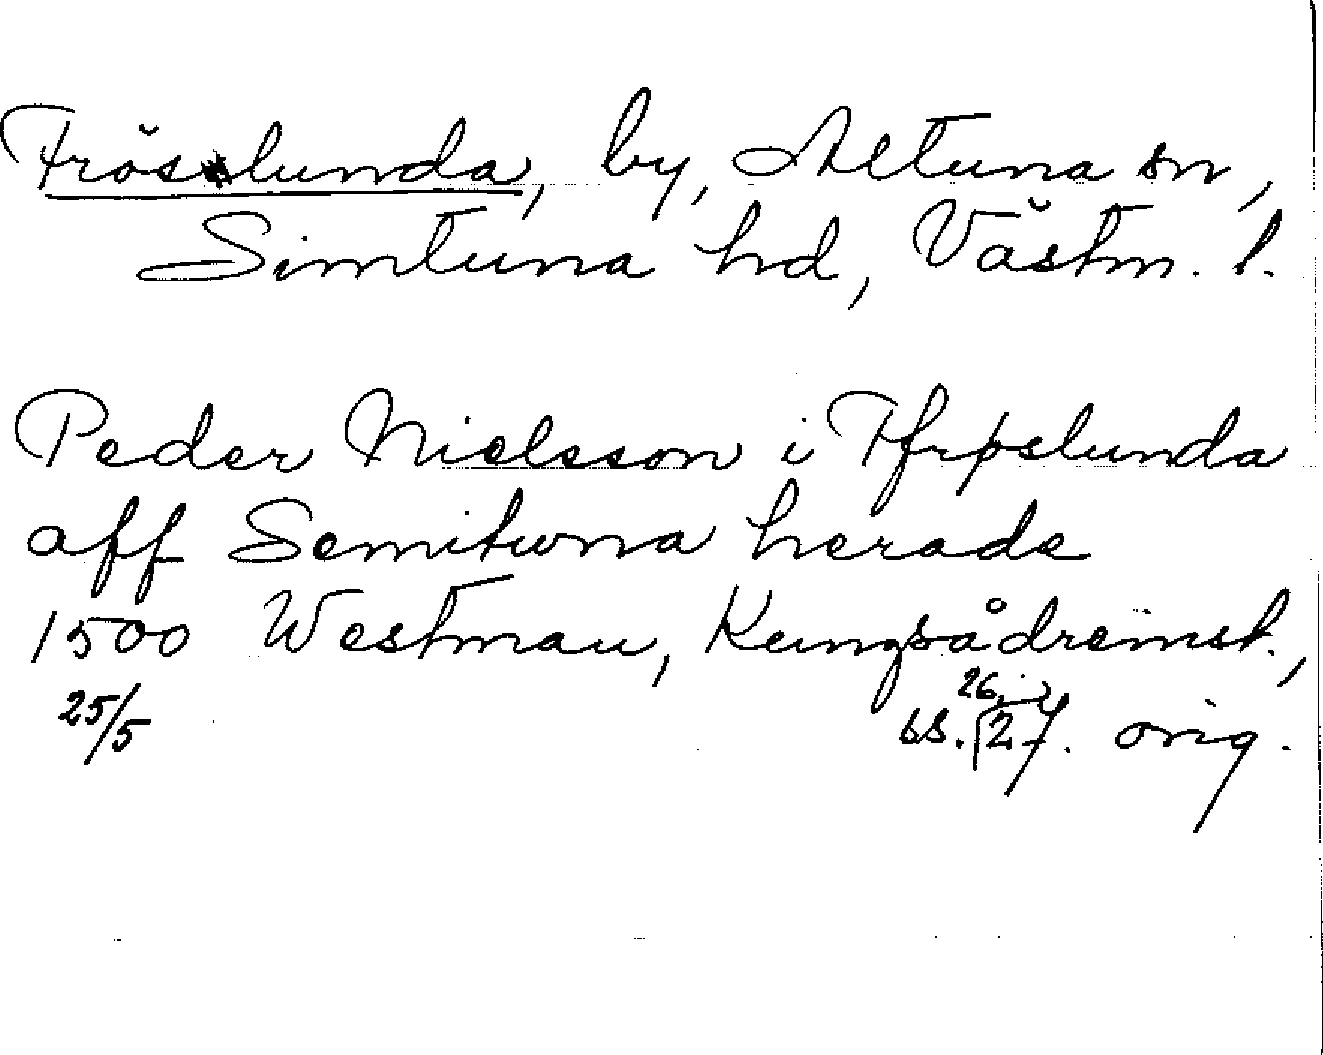 Fröslunda, by, Altuna sn,
Simtuna hd, Västm. l.
Peder Nielsson i Ffrøslunda
aff Semituna herade
1500 Westmau, Kungsådremsk.,
25/5 26
bs. 27. orig.